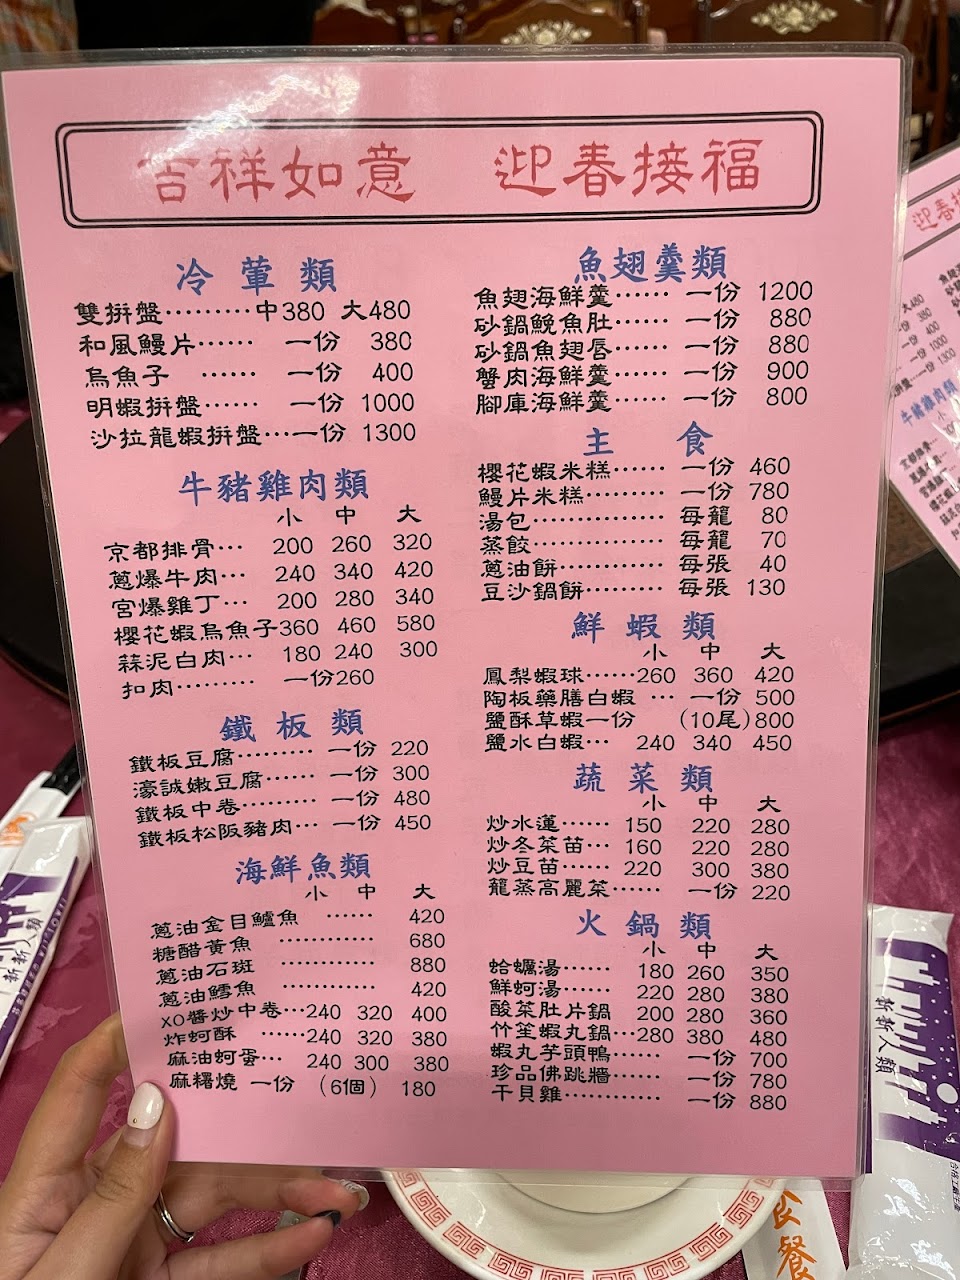 吉祥如意 迎春接福
冷葷類
雙拼盤………中380 大480
和風鰻片…… 一份 380
烏魚子 …… 一份 400
明蝦拼盤…… 一份 1000
沙拉龍蝦拼盤…一份 1300
牛豬雞肉類
小 中 大
京都排骨… 200 260 320
蔥爆牛肉… 240 340 420
宮爆雞丁… 200 280 340
櫻花蝦烏魚子360 460 580
蒜泥白肉… 180 240 300
扣肉……… 一份260
鐵板類
鐵板豆腐……… 一份 220
濠誠嫩豆腐…… 一份 300
鐵板中卷……… 一份 480
鐵板松阪豬肉… 一份 450
海鮮魚類
小 中 大
蔥油金目鱸魚 …… 420
糖醋黃魚 ………… 680
蔥油石斑 ………… 880
蔥油鱈魚 ………… 420
XO醬炒中卷…240 320 400
炸蚵酥 …240 320 380
麻油蚵蛋… 240 300 380
麻糬燒 一份 (6個) 180
魚翅羹類
魚翅海鮮羹…… 一份 1200
砂鍋鮸魚肚…… 一份 880
砂鍋魚翅唇…… 一份 880
蟹肉海鮮羹…… 一份 900
腳庫海鮮羹…… 一份 800
主食
櫻花蝦米糕…… 一份 460
鰻片米糕……… 一份 780
湯包…………… 每籠 80
蒸餃…………… 每籠 70
蔥油餅………… 每張 40
豆沙鍋餅……… 每張 130
鮮蝦類
小 中 大
鳳梨蝦球……260 360 420
陶板藥膳白蝦 … 一份 500
鹽酥草蝦一份 (10尾)800
鹽水白蝦… 240 340 450
蔬菜類
小 中 大
炒水蓮…… 150 220 280
炒冬菜苗… 160 220 280
炒豆苗…… 220 300 380
籠蒸高麗菜…… 一份 220
火鍋類
小 中 大
蛤蠣湯…… 180 260 350
鮮蚵湯…… 220 280 380
酸菜肚片鍋 200 280 360
竹笙蝦丸鍋…280 380 480
蝦丸芋頭鴨…… 一份 700
珍品佛跳牆…… 一份 780
干貝雞………… 一份 880
迎春接
大480
380
400
一份 1000
一份 1300
牛豬雞肉類
新新人類
新新人類
食餐